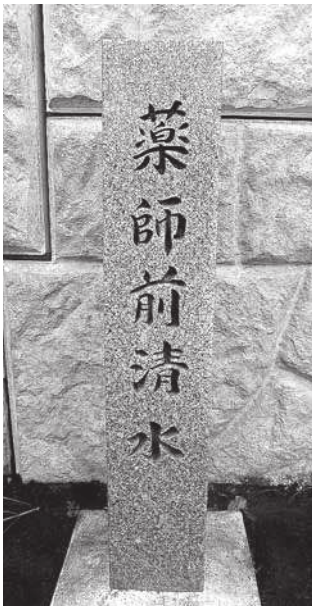 薬師前清水